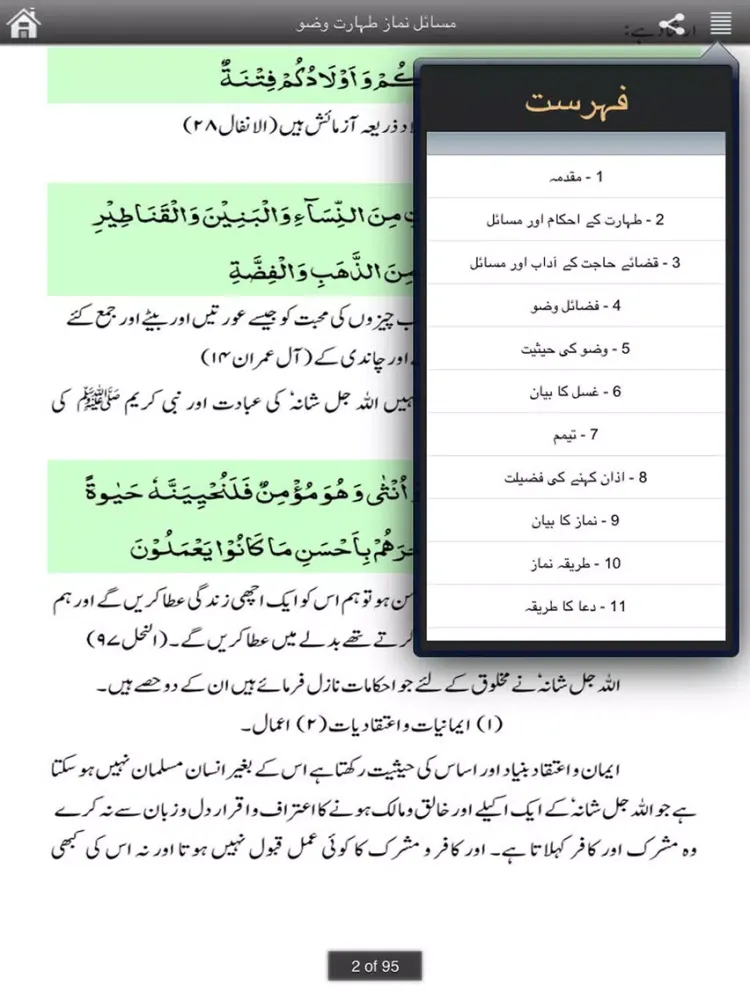 مسائل نماز طہارت وضو
ارشاد ہے:
كُمْ وَاَوْلَادُكُمْ فِتْنَةٌ
د ذریعہ آزمائش ہیں (الانفال ۲۸)
مِنَ النِّسَآءِ وَالْبَنِيْنَ وَالْقَنَاطِيْرِ
مِنَ الذَّهَبِ وَالْفِضَّةِ
ب چیزوں کی محبت کو جیسے عورتیں اور بیٹے اور جمع کئے
اور چاندی کے (آل عمران ۱۴)
نہیں اللہ جل شانہٗ کی عبادت اور نبی کریم ﷺ کی
اُنْثٰى وَهُوَ مُؤْمِنٌ فَلَنُحْيِيَنَّهٗ حَيٰوةً
جْرَهُمْ بِاَحْسَنِ مَا كَانُوْا يَعْمَلُوْنَ
من ہو تو ہم اس کو ایک اچھی زندگی عطا کریں گے اور ہم
کرتے تھے بدلے میں عطا کریں گے۔ (النحل ۹۷)
اللہ جل شانہٗ نے مخلوق کے لئے جو احکامات نازل فرمائے ہیں ان کے دو حصے ہیں۔
(۱) ایمانیات و اعتقادیات (۲) اعمال۔
ایمان و اعتقاد بنیاد اور اساس کی حیثیت رکھتا ہے اس کے بغیر انسان مسلمان نہیں ہو سکتا
ہے جو اللہ جل شانہٗ کے ایک اکیلے اور خالق و مالک ہونے کا اعتراف و اقرار دل و زبان سے نہ کرے
وہ مشرک اور کافر کہلاتا ہے۔ اور کافر و مشرک کا کوئی عمل قبول نہیں ہوتا اور نہ اس کی کبھی
فہرست
1 - مقدمہ
2 - طہارت کے احکام اور مسائل
3 - قضائے حاجت کے آداب اور مسائل
4 - فضائل وضو
5 - وضو کی حیثیت
6 - غسل کا بیان
7 - تیمم
8 - اذان کہنے کی فضیلت
9 - نماز کا بیان
10 - طریقہ نماز
11 - دعا کا طریقہ
2 of 95